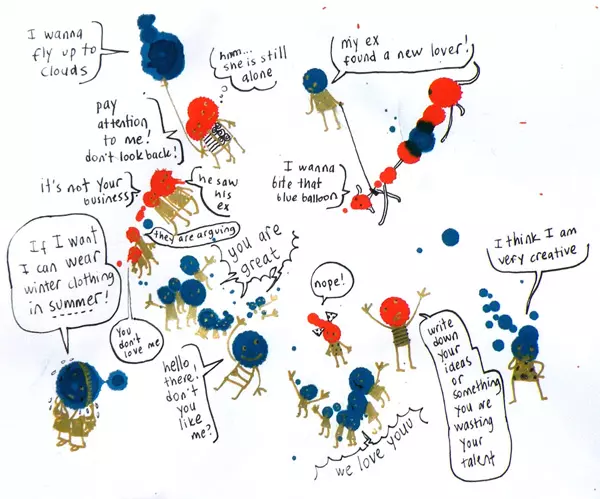 I wanna
fly up to
clouds
hmm...
she is still
alone
my ex
found a new lover!
pay
attention
to me!
don't look back!
it's not your
business
he saw
his
ex
I wanna
bite that
blue balloon
they are arguing
you are
great
If I want
I can wear
winter clothing
in summer!
You
don't
love me
hello
there!
don't
you
like
me?
nope!
I think I am
very creative
write
down
your
ideas
or
something
you are
wasting
your
talent
we love youu